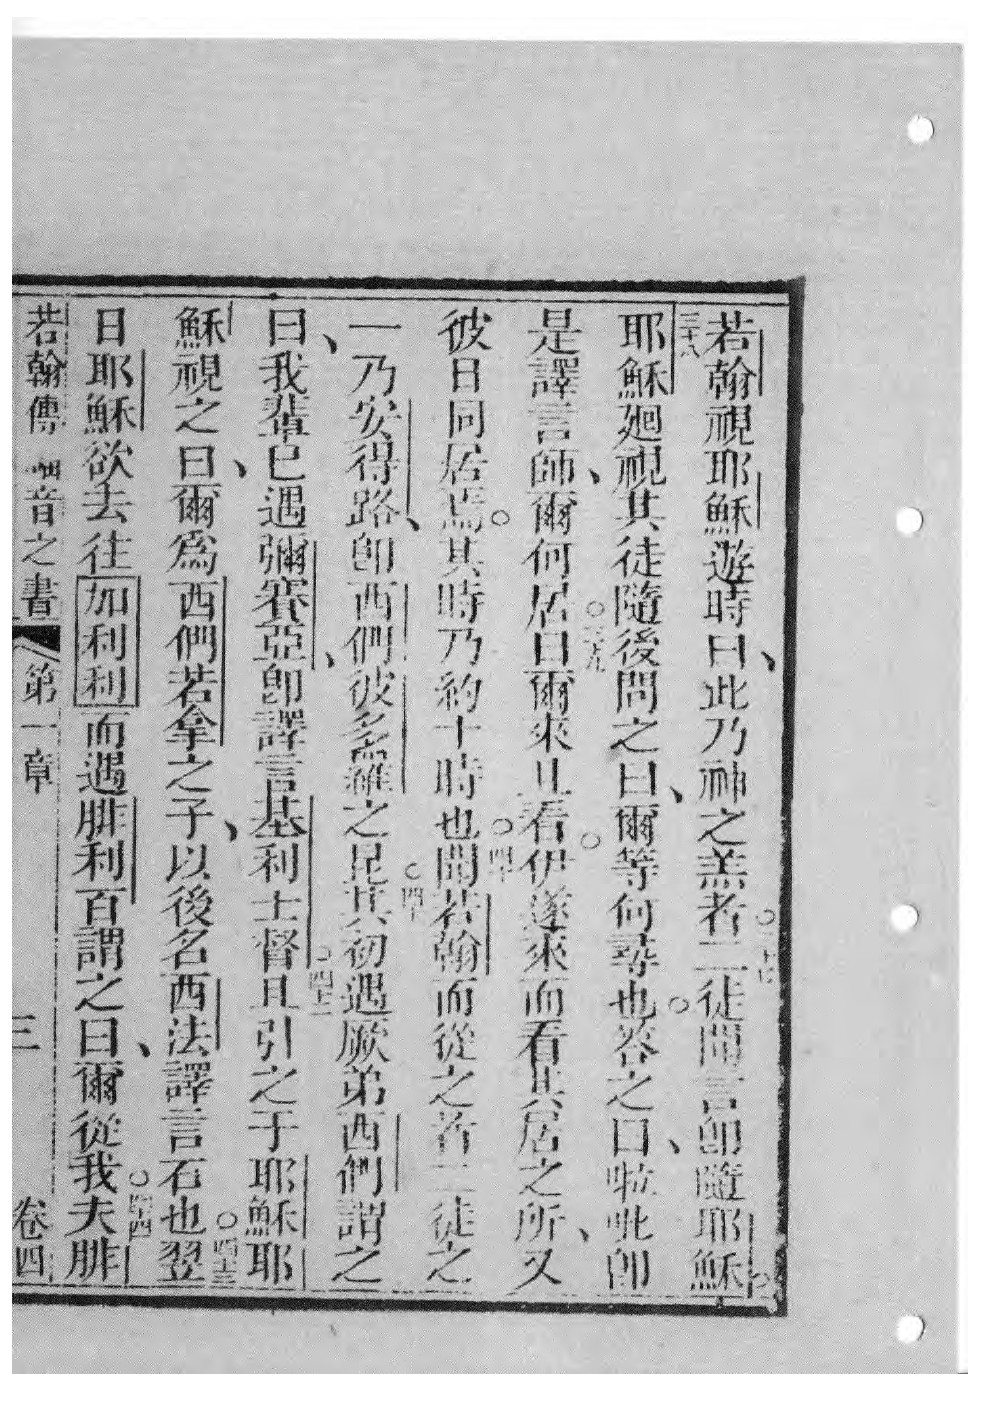 若翰視耶穌遊時曰、此乃神之羔者。三十七二徒聞言卽隨耶穌。
三十八耶穌廻視其徒隨後問之曰、爾等何尋也。答之曰、㕸吡卽
是譯言師、爾何居。三十九曰爾來且看。伊遂來而看其居之所、又
彼日同居焉。其時乃約十時也。四十聞若翰而從之者二徒之
一乃安得路、卽西們彼多羅之昆。四十一其初遇厥弟西們謂之
曰、我輩已遇彌賽亞、卽譯言基利士督。四十二且引之于耶穌耶
穌視之曰、爾爲西們若拿之子、以後名西法譯言石也。四十三翌
日耶穌欲去往加利利而遇腓利百謂之曰、爾從我。四十四夫腓
若翰傳福音之書 第一章 三 卷四